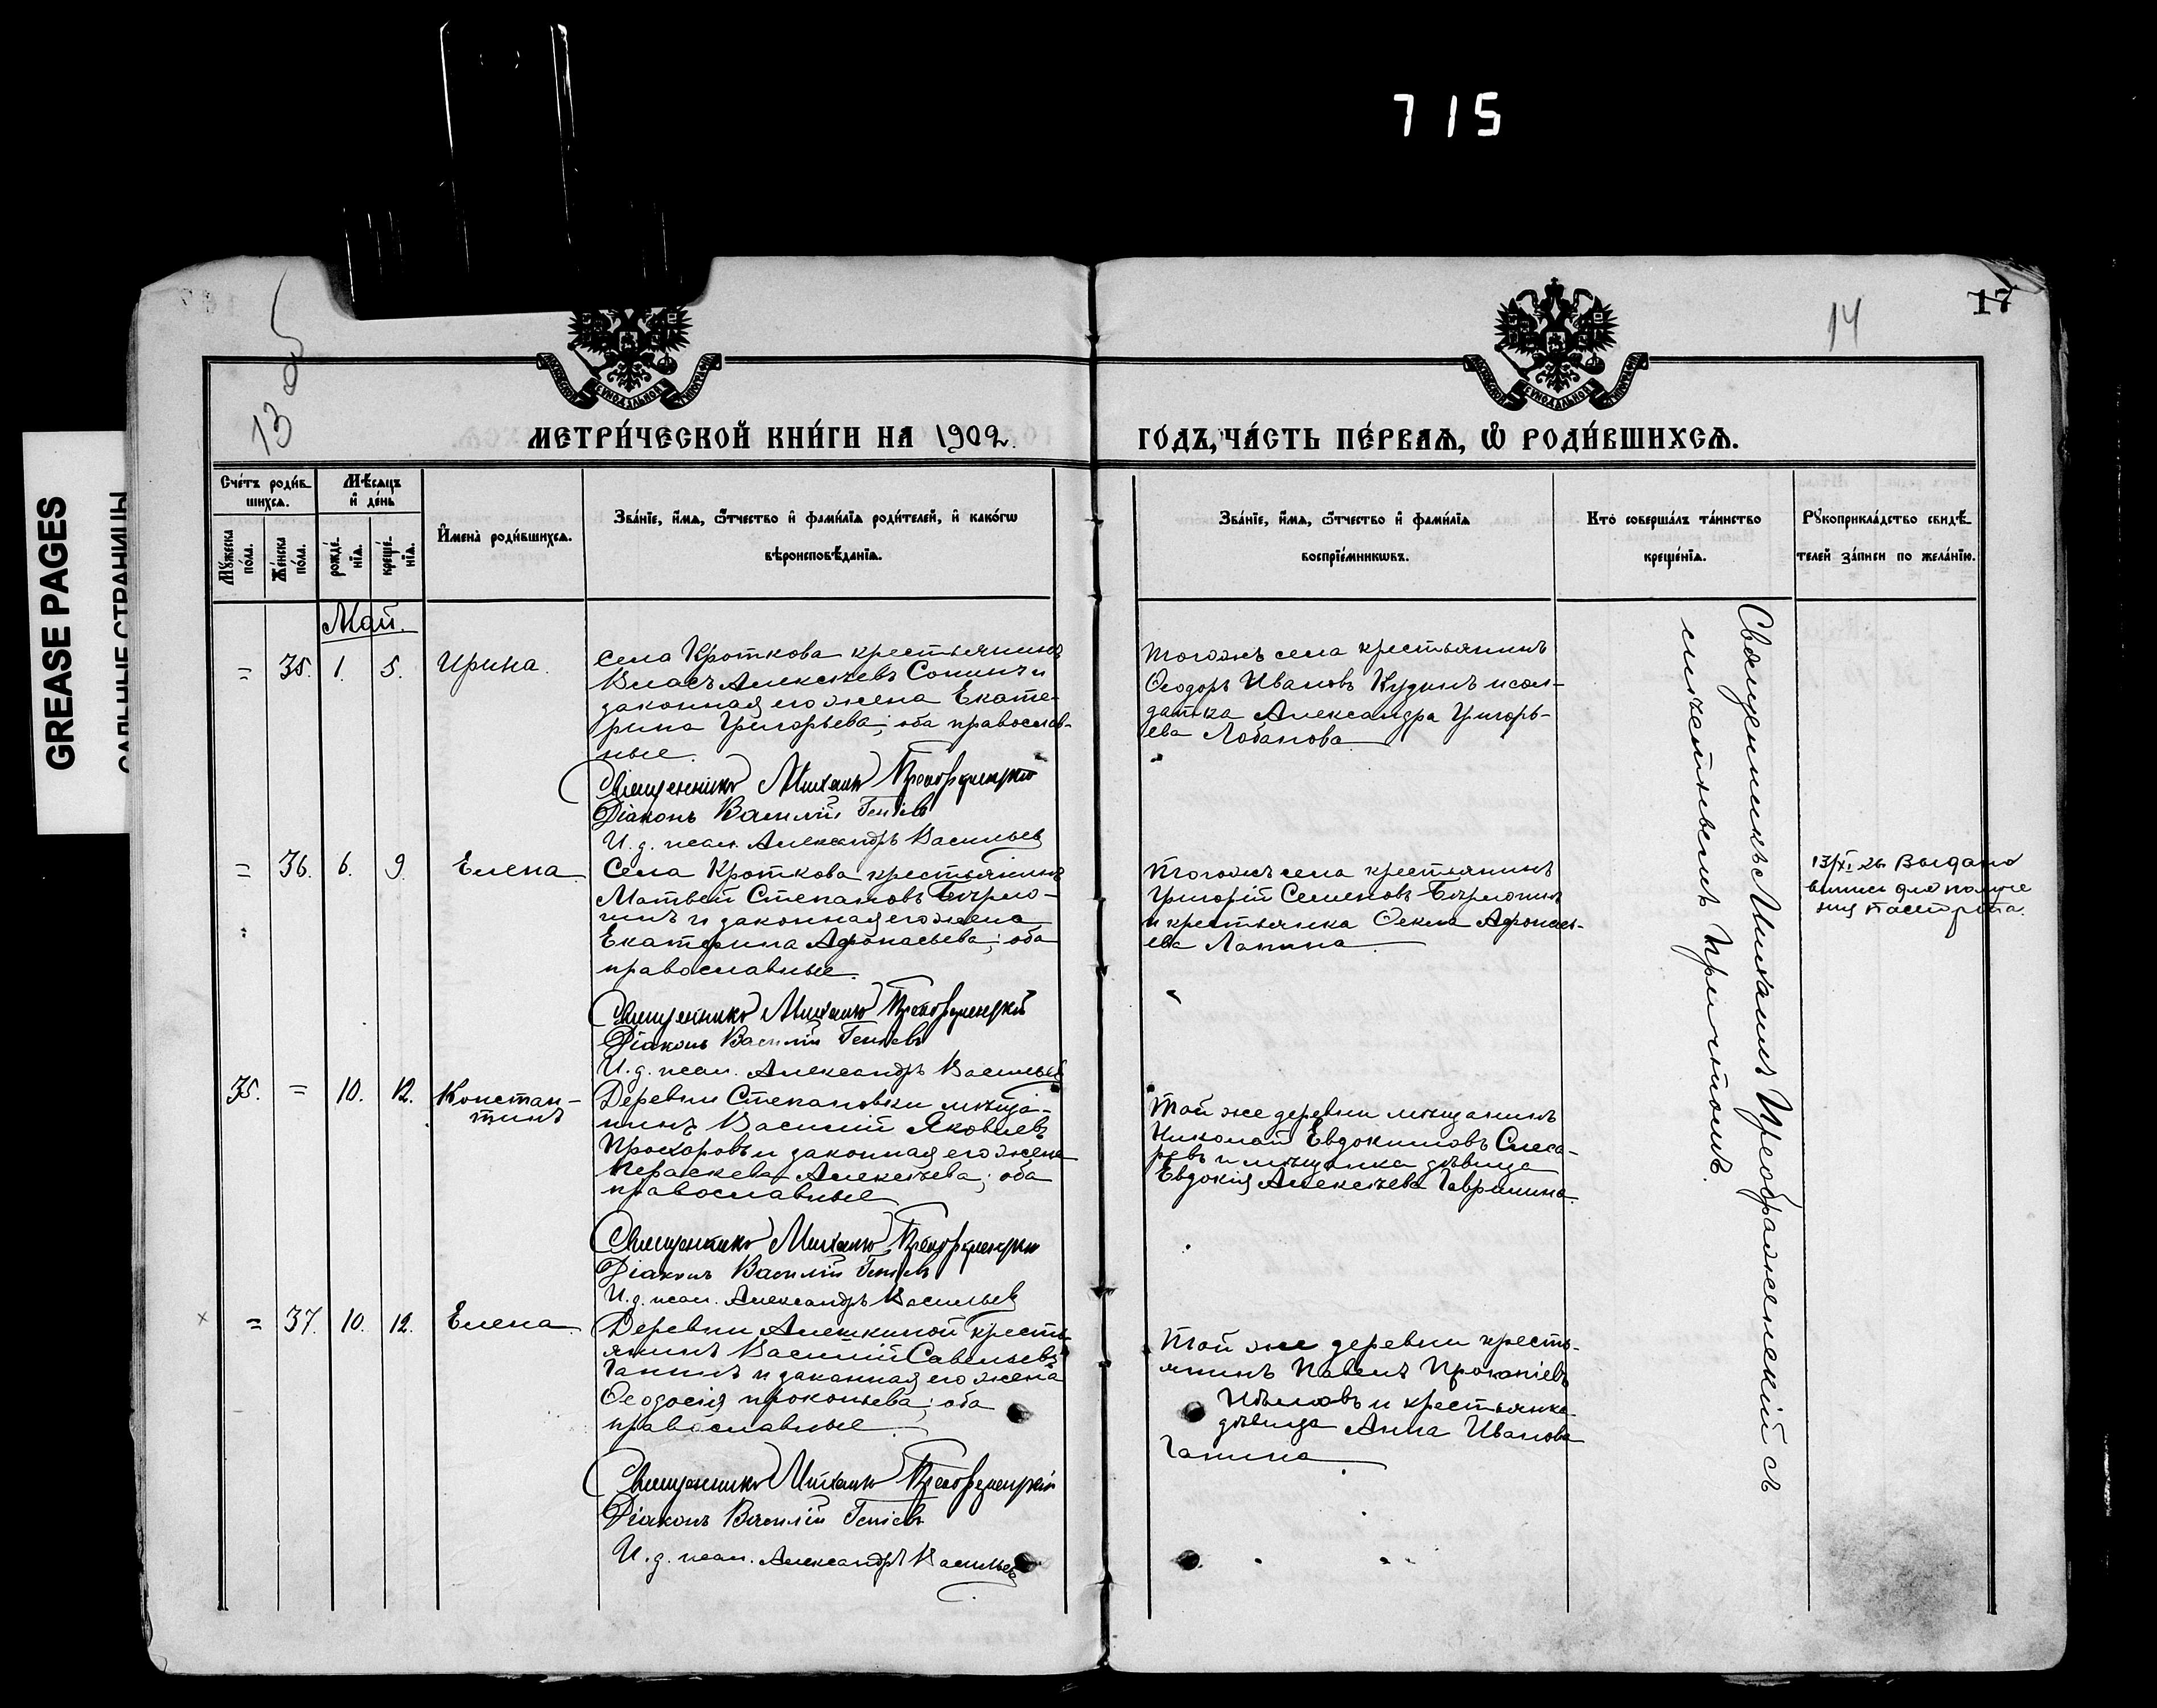 715
GREASE PAGES
САЛЬНЫЕ СТРАНИЦЫ
13
14
17
МЕТРИ́ЧЕСКОЙ КНИ́ГИ НА 1902
ГО́ДЪ, ЧА́СТЬ ПЕ́РВАѦ, Ѽ РОДИ́ВШИХСѦ.
Сче́тъ роди́в
шихсѧ.
Мꙋ́жеска по́ла.
Же́нска по́ла.
Мѣ́сѧцъ
и҆ де́нь
рожде́нїѧ.
креще́нїѧ.
И҆мена̀ роди́вшихсѧ.
Зва́нїе, и҆́мѧ, ѻ҆́тчество и҆ фами́лїѧ роди́телей, и҆ како́гѡ
вѣроисповѣ́данїѧ.
Зва́нїе, и҆́мѧ, ѻ҆́тчество и҆ фами́лїѧ
воспрїе́мникѡвъ.
Кто̀ соверша́лъ та́инство
креще́нїѧ.
Рꙋкоприкла́дство свидѣ́
телей за́писи по жела́нїю.
Май.
= 35. 1. 5. Ирина.
Села Кроткова крестьянинъ
Власъ Алексѣевъ Сонинъ и
законная его жена Екате-
рина Григорьева; оба православ-
ные.
Священникъ Михаилъ Преображенскій
Діаконъ Василій Геніевъ
И. д. псал. Александръ Васильевъ
Тогожъ села крестьянинъ
Ѳеодоръ Ивановъ Кудинъ и сол-
датка Александра Григорь-
ева Лобанова
= 36. 6. 9. Елена.
Села Кроткова крестьянинъ
Матвей Степановъ
и законная его жена
Екатерина Афонасьева; оба
православные.
Священникъ Михаилъ Преображенскій
Діаконъ Василій Геніевъ
И. д. псал. Александръ Васильевъ
Тогожъ села крестьянинъ
Григорій Семеновъ
и крестьянка Ѳекла Афонась-
ева Лапина
13/XI 26 Выдана
выпись для получе
ния паспорта.
35. = 10. 12. Констан-
тинъ
Деревни Степановки мѣща-
нинъ Василій Яковлевъ
Прохоровъ и законная его жена
Параскева Алексѣева; оба
православные
Священникъ Михаилъ Преображенскій
Діаконъ Василій Геніевъ
И. д. псал. Александръ Васильевъ
Той же деревни мѣщанинъ
Николай Евдокимовъ Слеса-
ревъ и мѣщанка дѣвица
Евдокія Алексѣева Гаврилина.
× = 37. 10. 12. Елена.
Деревни Алешкиной кресть-
янинъ Василій Савельевъ
Ганинъ и законная его жена
Ѳеодосія Прокопьева; оба
православные
Священникъ Михаилъ Преображенскій
Діаконъ Василій Геніевъ
И. д. псал. Александръ Васильевъ
Той же деревни кресть-
янинъ Павелъ Прокопіевъ
и крестьянка
дѣвица Анна Иванова
Ганина
Священникъ Михаилъ Преображенскій съ
слѣчетнымъ Причтомъ.